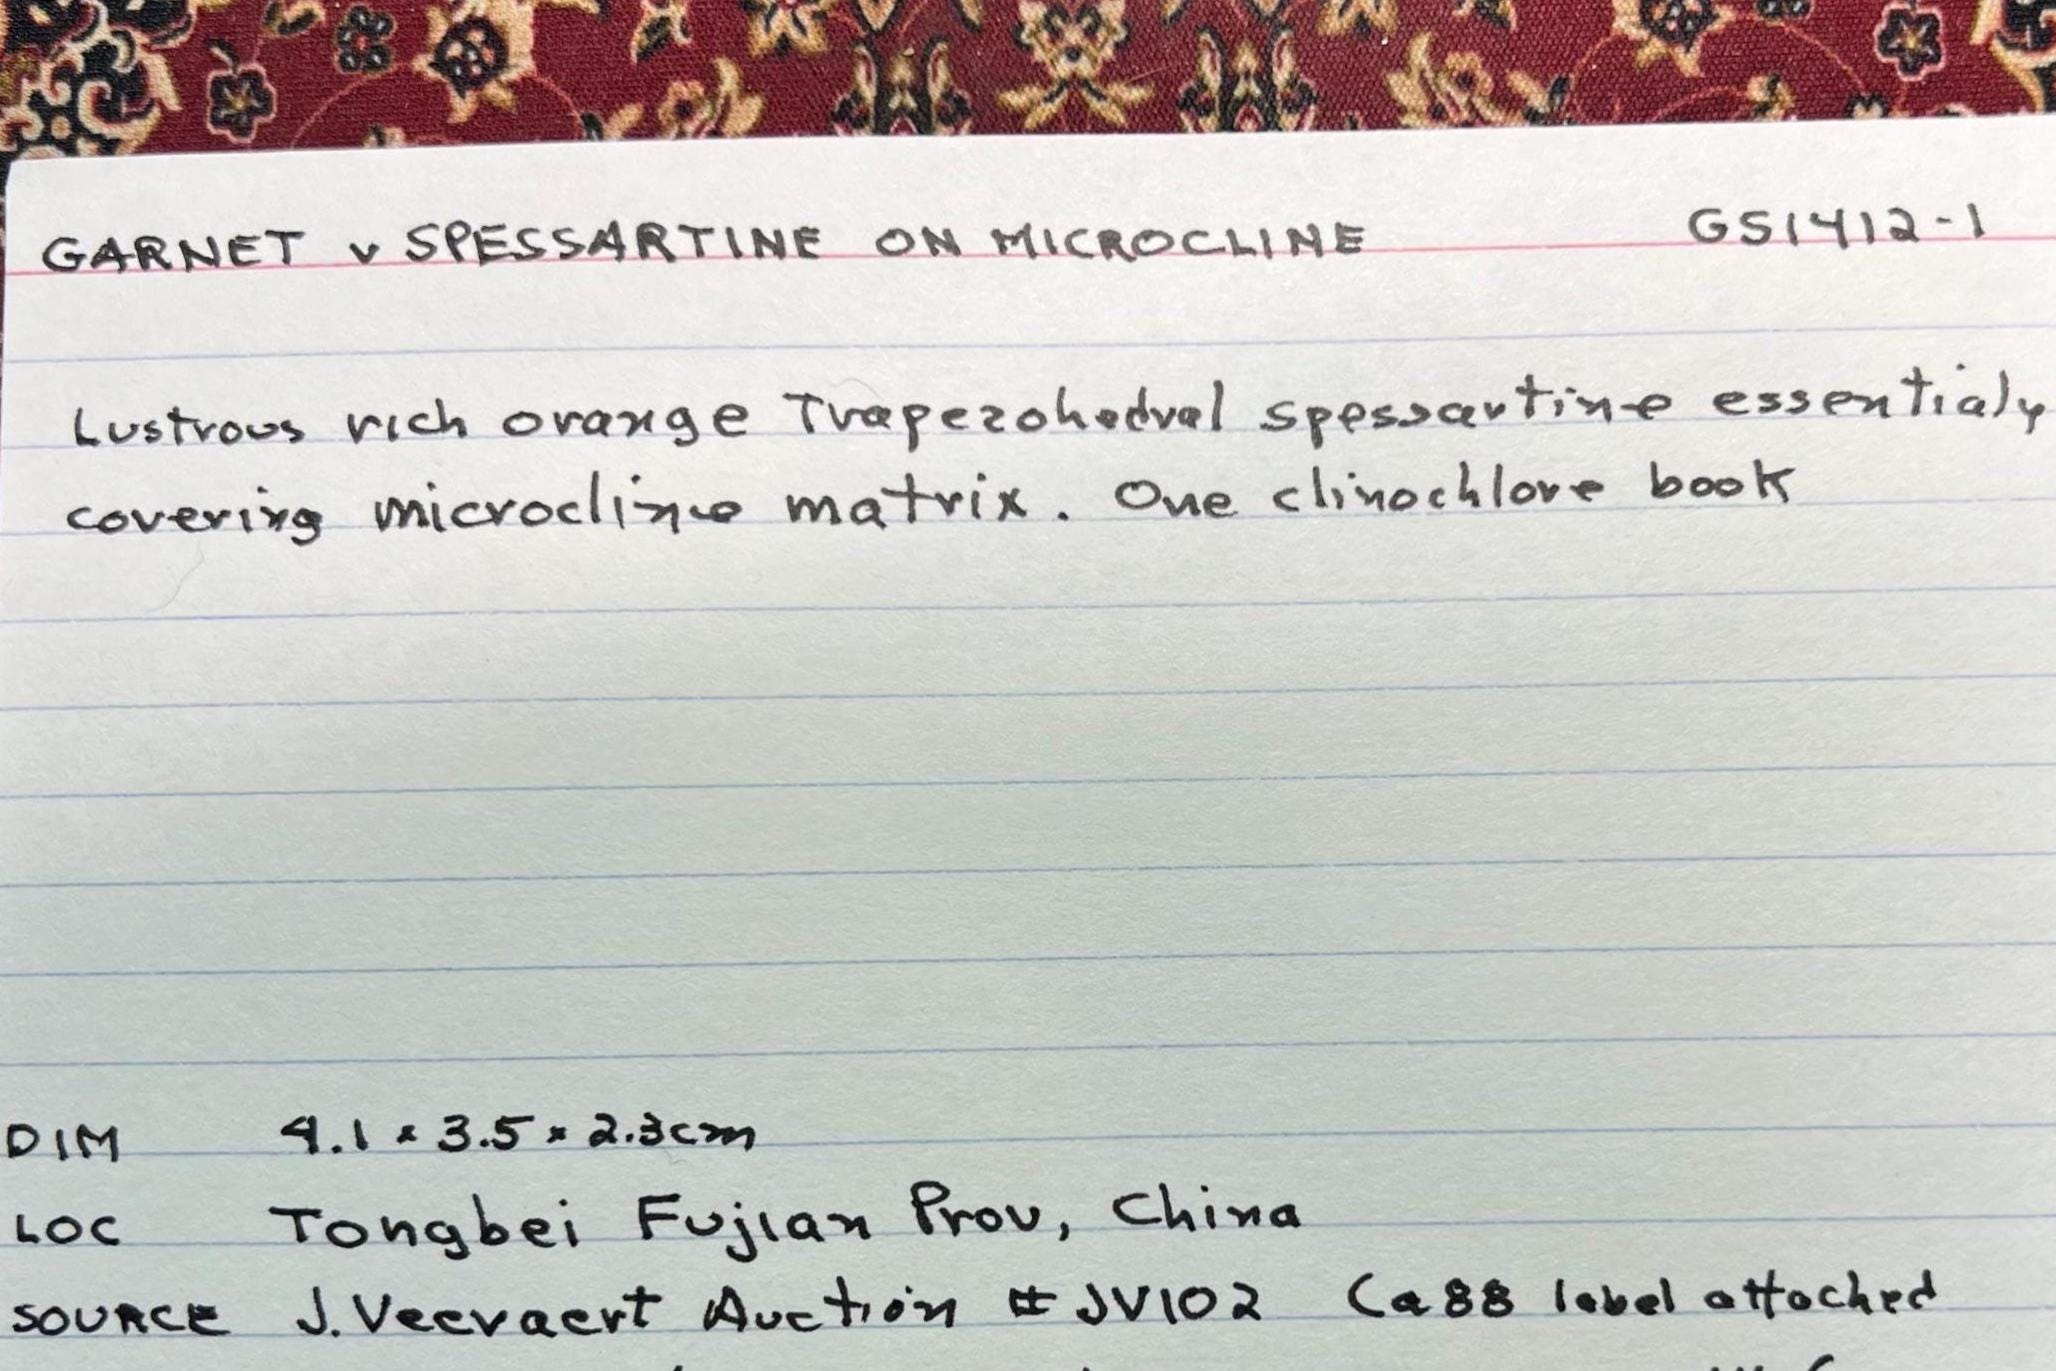 GARNET v SPESSARTINE ON MICROCLINE GS1412-1
Lustrous rich orange Trapezohedral spessartine essentialy
covering microcline matrix. One clinochlore book
DIM 4.1 x 3.5 x 2.3cm
LOC Tongbei Fujian Prov, China
SOURCE J. Veevaert Auction # JV102 Ca88 label attached